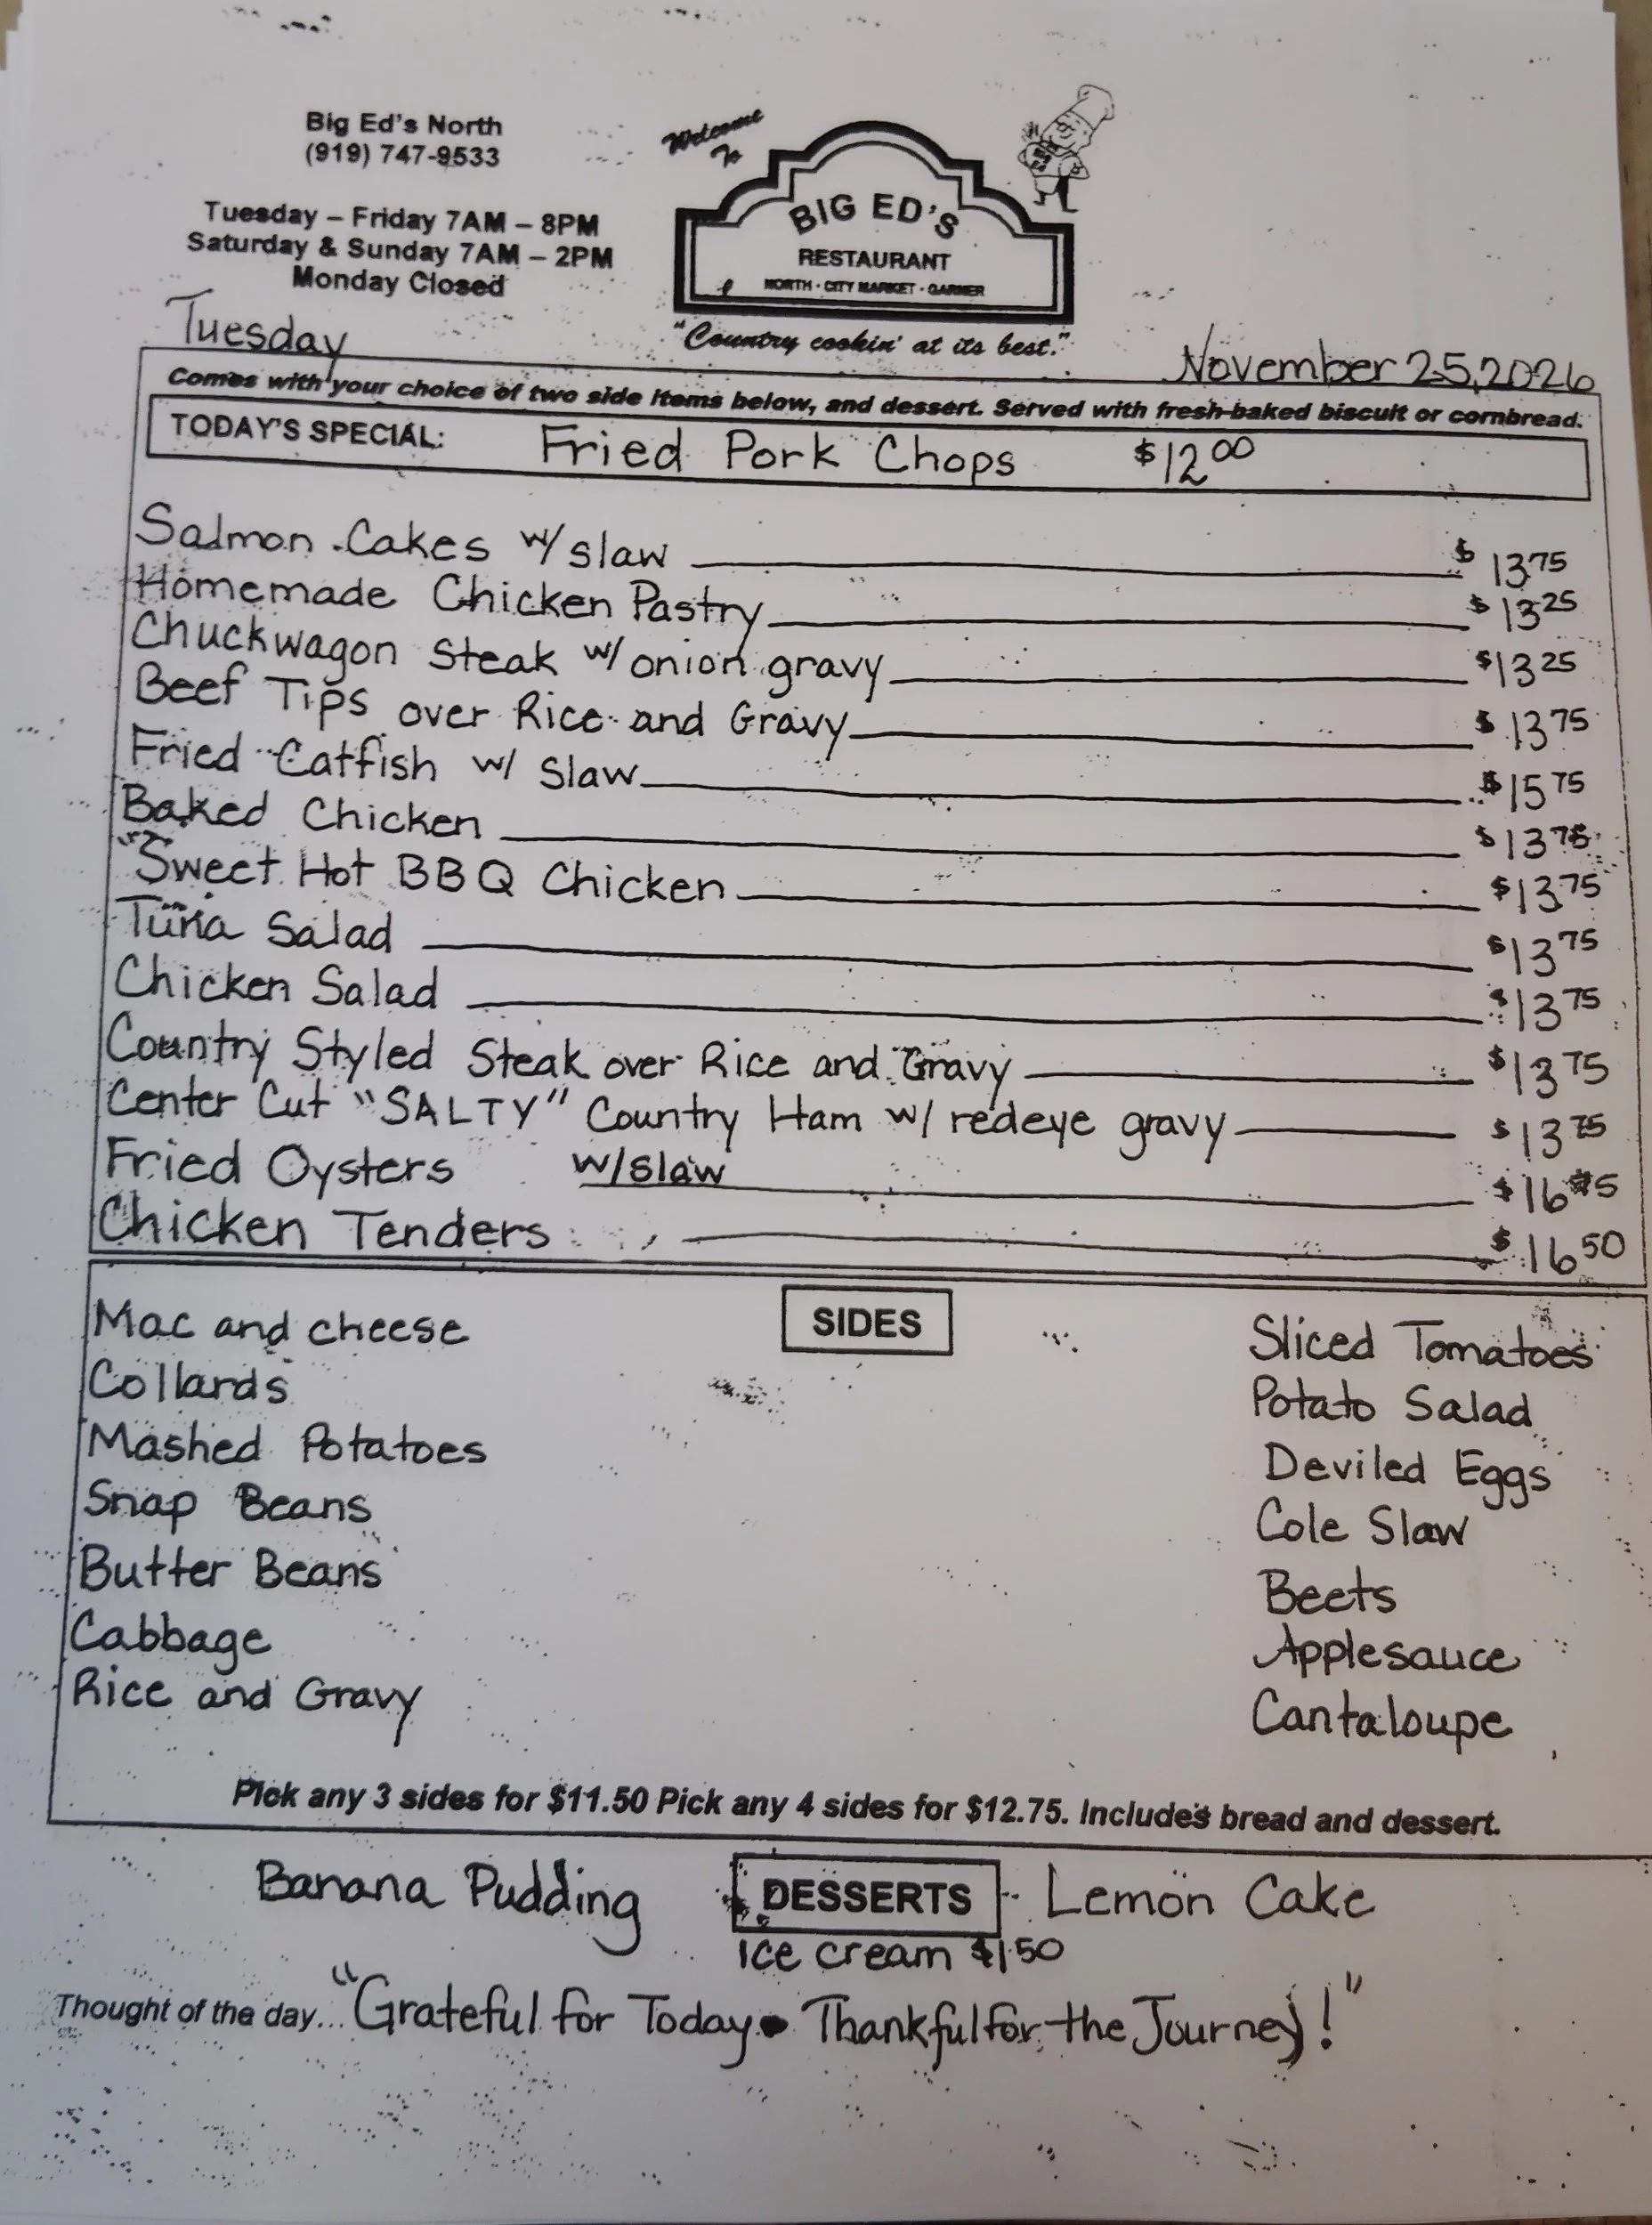 Big Ed's North
(919) 747-9533
Tuesday – Friday 7AM – 8PM
Saturday & Sunday 7AM – 2PM
Monday Closed
Welcome
To
BIG ED'S
RESTAURANT
NORTH · CITY MARKET · GARNER
"Country cookin' at its best."
Tuesday
November 25, 2026
Comes with your choice of two side items below, and dessert. Served with fresh-baked biscuit or cornbread.
TODAY'S SPECIAL: Fried Pork Chops $12 00
Salmon Cakes w/ slaw $ 13 75
Homemade Chicken Pastry $ 13 25
Chuckwagon Steak w/ onion gravy $13 25
Beef Tips over Rice and Gravy $ 13 75
Fried Catfish w/ Slaw $15 75
Baked Chicken $ 13 75
Sweet Hot BBQ Chicken $13 75
Tuna Salad $13 75
Chicken Salad $13 75
Country Styled Steak over Rice and Gravy $13 75
Center Cut "SALTY" Country Ham w/ redeye gravy $ 13 75
Fried Oysters w/slaw $ 16 75
Chicken Tenders $ 16 50
SIDES
Mac and cheese
Collards
Mashed Potatoes
Snap Beans
Butter Beans
Cabbage
Rice and Gravy
Sliced Tomatoes
Potato Salad
Deviled Eggs
Cole Slaw
Beets
Applesauce
Cantaloupe
Pick any 3 sides for $11.50 Pick any 4 sides for $12.75. Includes bread and dessert.
Banana Pudding DESSERTS Lemon Cake
Ice cream $1.50
Thought of the day... "Grateful for Today. Thankful for the Journey!"